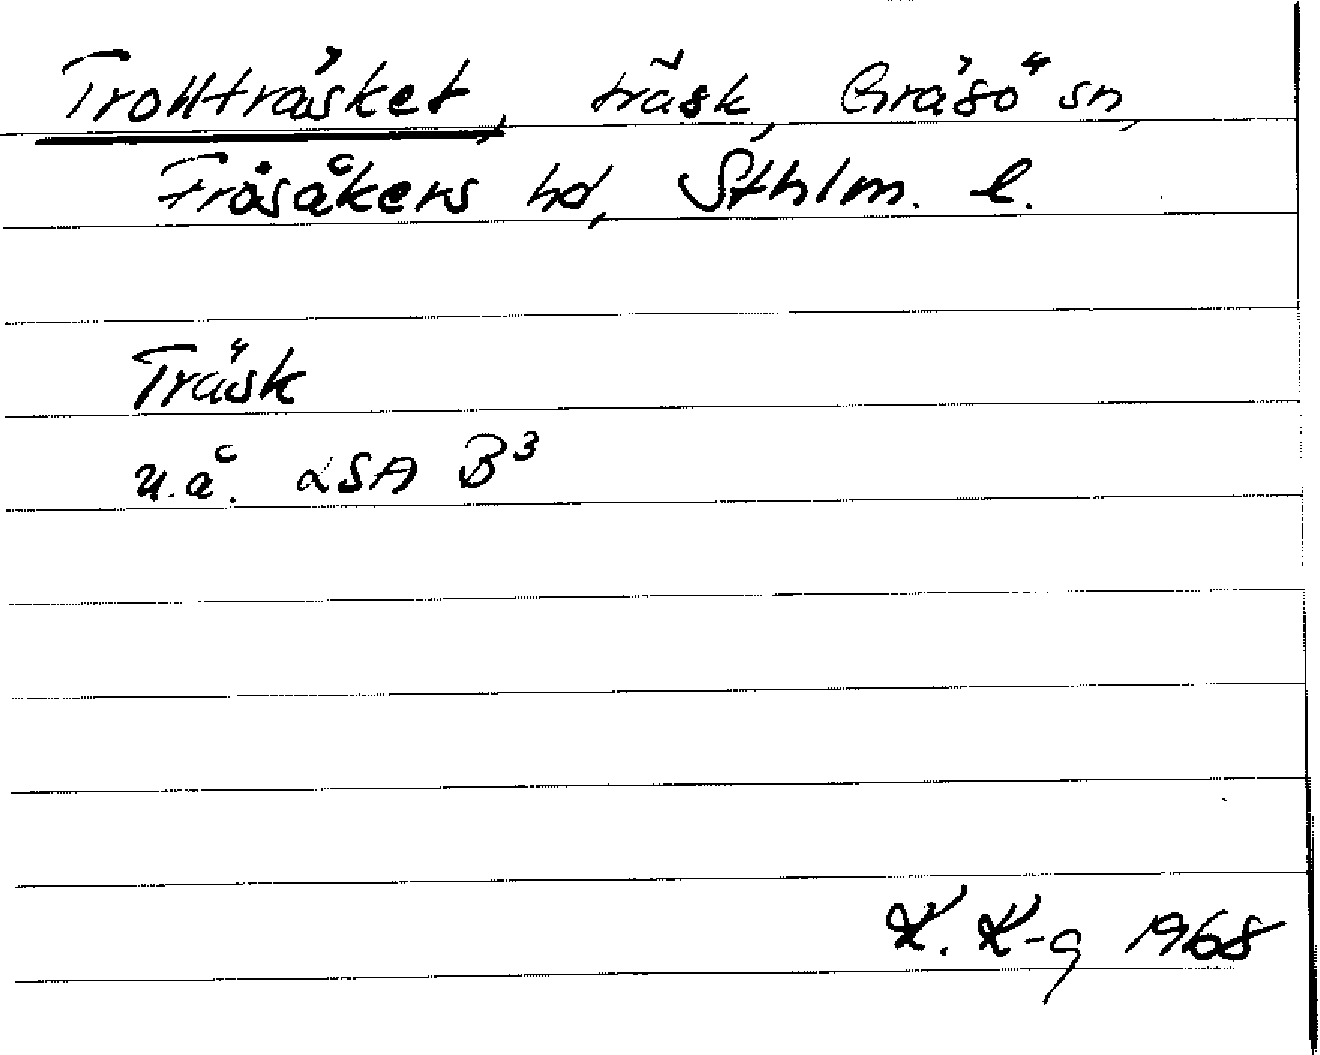 Trollträsket, träsk, Gräsö sn,
Frösåkers hd, Sthlm. l.
Träsk
u.å. LSA B³
K. K-g 1968